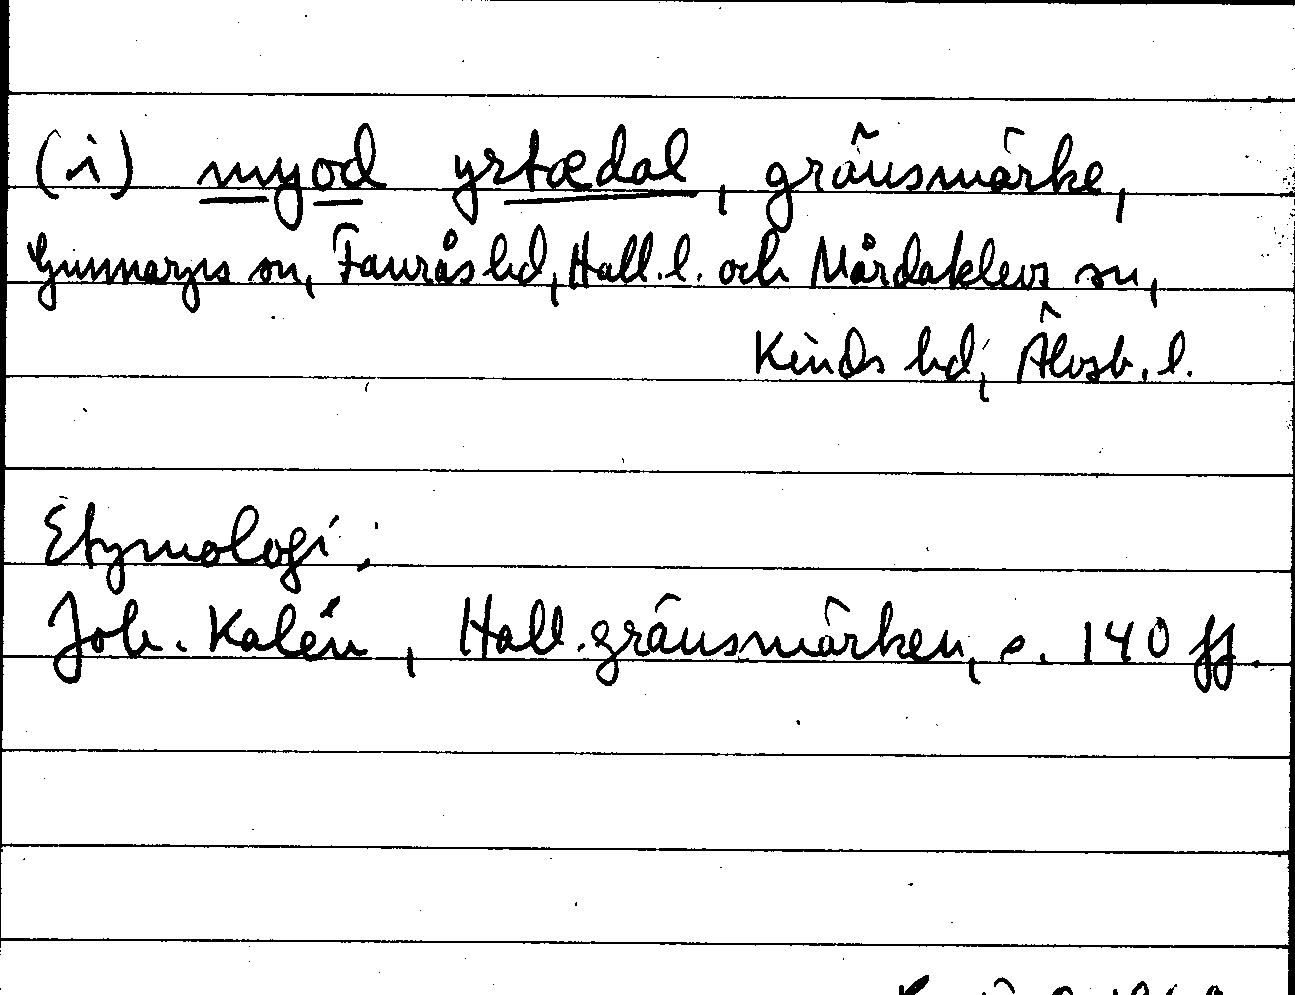 (i) myod yrtædal, gränsmärke,
Gunnarps sn, Faurås hd, Hall. l. och Mårdaklevs sn,
Kinds hd, Älvsb. l.
Etymologi:
Joh. Kalén, Hall. gränsmärken, s. 140 ff.